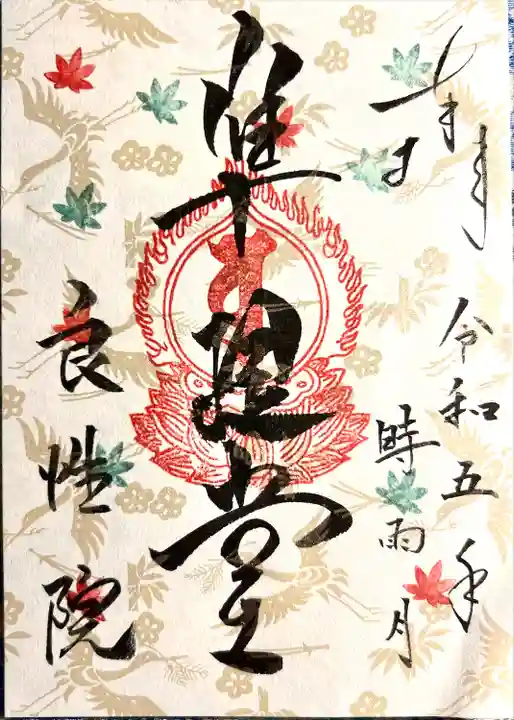 令和五年
時雨月
準提堂
良性院